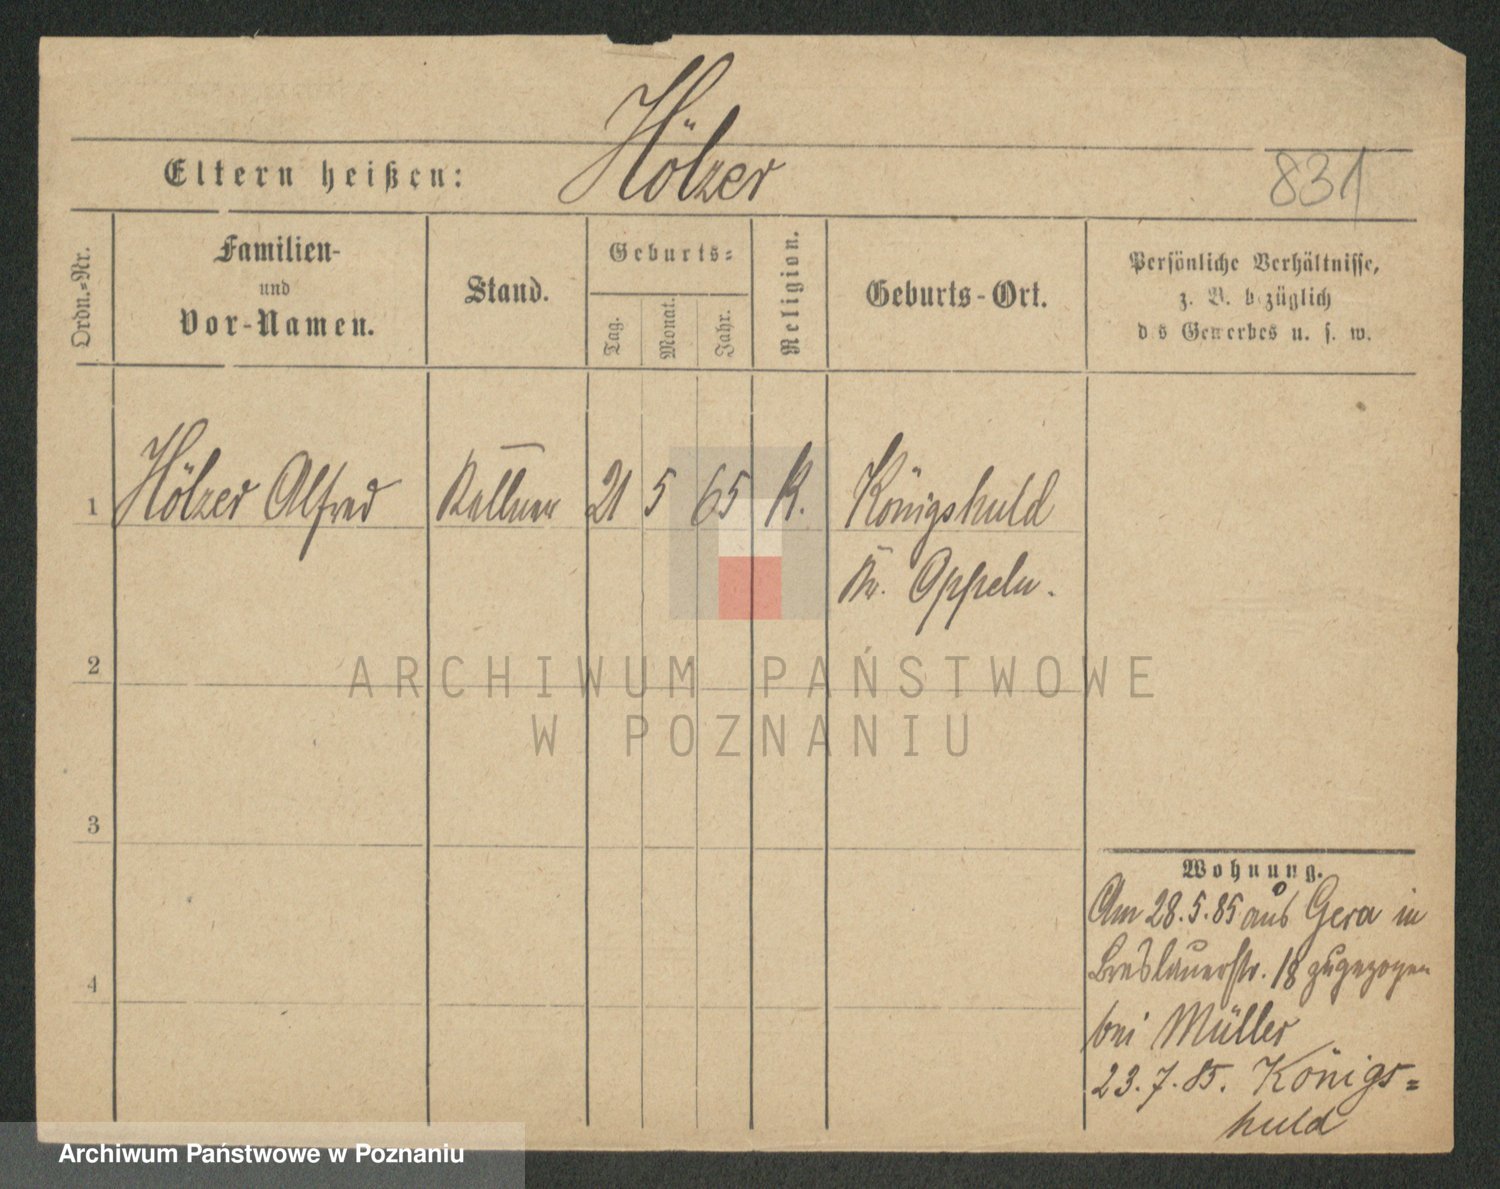 Hölzer
Eltern heißen:
831
Ordn.=Nr.
Familien-
und
Vor-Namen.
Stand.
Geburts=
Tag.
Monat.
Jahr.
Religion.
Geburts-Ort.
Persönliche Verhältnisse,
z. B. bezüglich
des Gewerbes u. s. w.
1 Hölzer Alfred Kellner 21 5 65 K. Königshuld
Kr. Oppeln.
2
3
4
ARCHIWUM PAŃSTWOWE
W POZNANIU
Wohnung.
Am 28.5.85 aus Gera in
Breslauerstr. 18 zugezogen
bei Müller
23.7.85. Königs=
huld
Archiwum Państwowe w Poznaniu